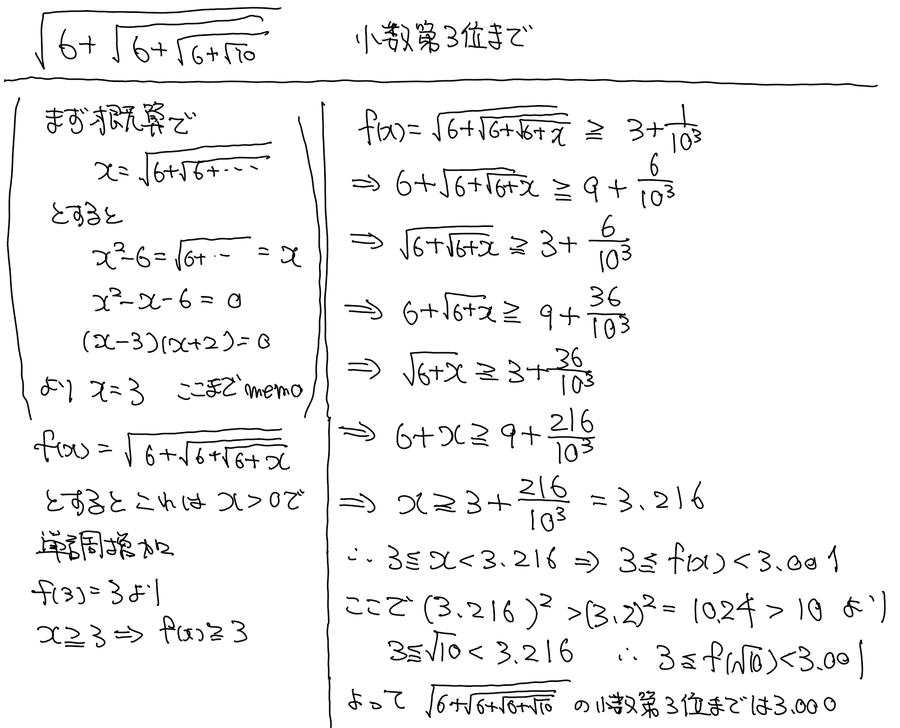 √(6+√(6+√(6+√10))) 小数第3位まで
まず概算で
x=√(6+√(6+⋯))
とすると
x²-6=√(6+⋯) = x
x²-x-6=0
(x-3)(x+2)=0
より x=3 ここまでmemo
f(x)=√(6+√(6+√(6+x)))
とするとこれは x>0で
単調増加
f(3)=3より
x≧3⇒f(x)≧3
f(x)=√(6+√(6+√(6+x))) ≧ 3+1/10³
⇒ 6+√(6+√(6+x)) ≧ 9+6/10³
⇒ √(6+√(6+x)) ≧ 3+6/10³
⇒ 6+√(6+x) ≧ 9+36/10³
⇒ √(6+x) ≧ 3+36/10³
⇒ 6+x ≧ 9+216/10³
⇒ x ≧ 3+216/10³ = 3.216
∴ 3≦x<3.216 ⇒ 3≦f(x)<3.001
ここで (3.216)²>(3.2)²=10.24>10 より
3≦√10<3.216 ∴ 3≦f(√10)<3.001
よって √(6+√(6+√(6+√10))) の小数第3位までは3.000